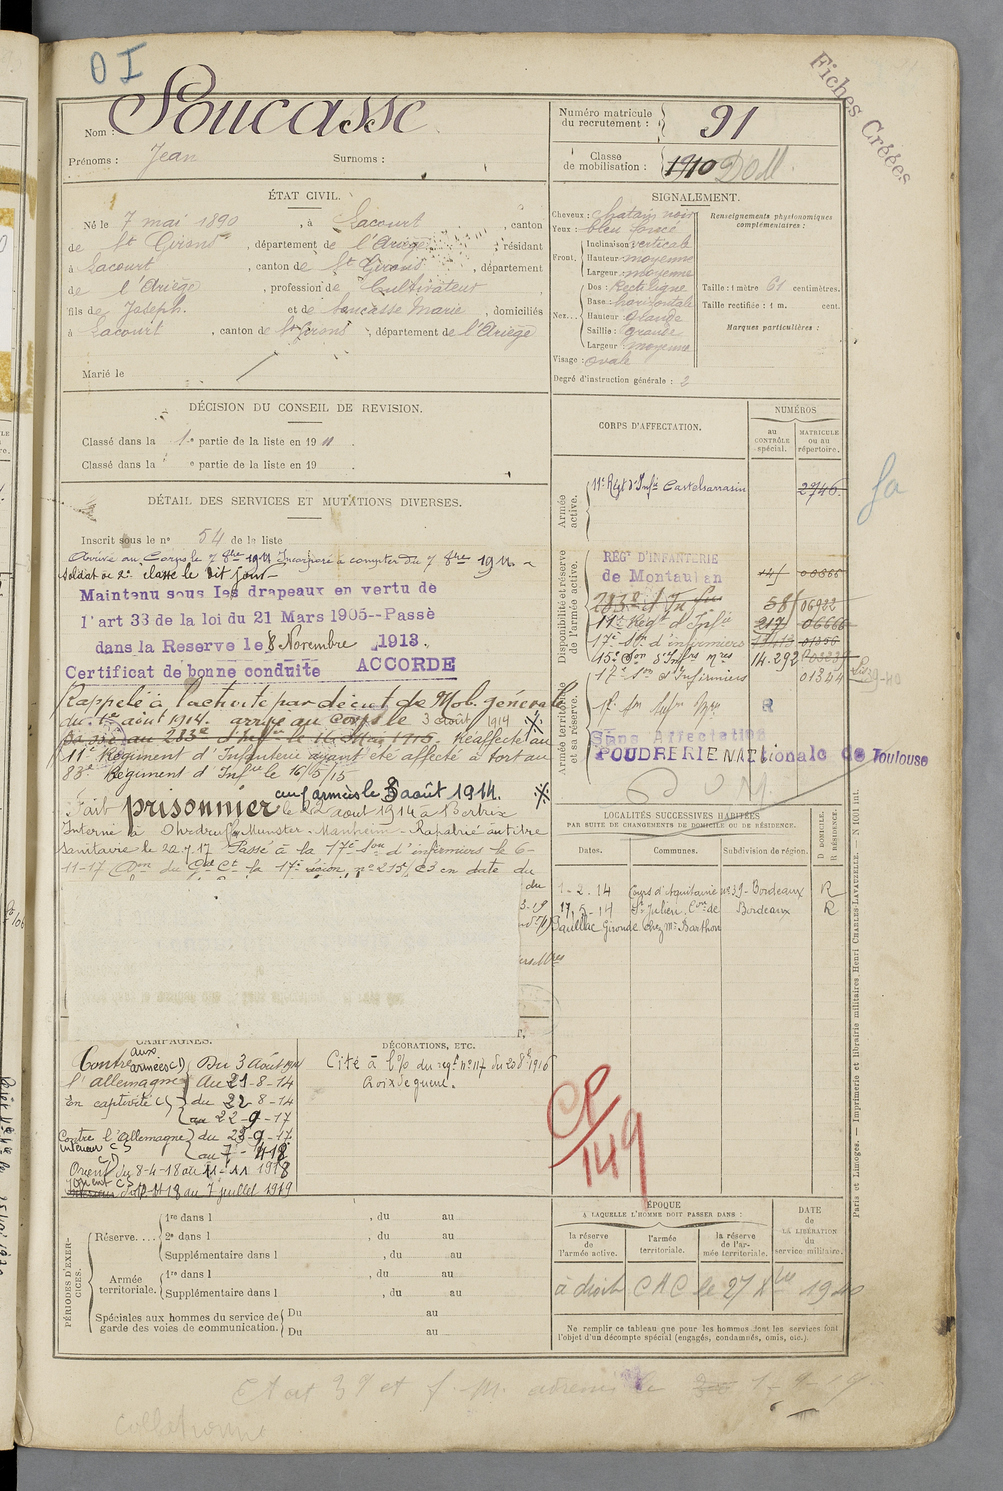 O I
Fiches Créées
Nom : Soucasse
Prénoms : Jean Surnoms :
Numéro matricule du recrutement : 91
Classe de mobilisation : 1910
ÉTAT CIVIL.
Né le 7 mai 1890, à Lacourt, canton
de St Girons, département de l'Ariège, résidant
à Lacourt, canton de St Girons, département
de l'Ariège, profession de Cultivateur
fils de Joseph. et de Soucasse Marie, domiciliés
à Lacourt, canton de St Girons, département de l'Ariège
Marié le
SIGNALEMENT.
Cheveux : chatain noir
Yeux : bleu foncé
Front. Inclinaison : verticale
Hauteur : moyenne
Largeur : moyenne
Nez... Dos : Rectiligne
Base : horizontale
Hauteur : Grande
Saillie : Grande
Largeur : moyenne
Visage : ovale
Degré d'instruction générale : 2
Renseignements physionomiques complémentaires :
Taille : 1 mètre 61 centimètres.
Taille rectifiée : 1 m. cent.
Marques particulières :
DÉCISION DU CONSEIL DE REVISION.
Classé dans la 1re partie de la liste en 1911.
Classé dans la e partie de la liste en 19 .
DÉTAIL DES SERVICES ET MUTATIONS DIVERSES.
Inscrit sous le n° 54 de la liste
Arrivé au Corps le 7 8bre 1911 Incorporé à compter du 7 8bre 1911.
Soldat de 2e classe le dit jour
Maintenu sous les drapeaux en vertu de
l'art 33 de la loi du 21 Mars 1905--Passé
dans la Reserve le 8 Novembre 1913.
Certificat de bonne conduite ACCORDE
Rappelé à l'activité par décret de Mob. générale
du 1er août 1914. arrivé au corps le 3 août 1914
Passé au 283e d'Infrie le 16 Mai 1915. Réaffecté au
11e Régiment d'Infanterie ayant été affecté à tort au
83e Régiment d'Infrie le 16/5/15
aux armées le 3 août 1914.
Fait prisonnier le 22 août 1914 à Bertrix
Interné à Ohrdruf, Munster - Manheim - Rapatrié au titre
sanitaire le 22.9.17 Passé à la 17e Son d'infirmiers le 6-
11-17 Don du Gal Ct la 17e région, n° 215/C3 en date du
du
CORPS D'AFFECTATION.
NUMÉROS
au CONTRÔLE spécial.
MATRICULE ou au répertoire.
Armée active.
11e Régt d'Infie Castelsarrasin 2746.
Disponibilité et réserve de l'armée active.
REGt D'INFANTERIE
de Montauban
283e d'Infie 58 06922
11e Régt d'Infie 217 06666
17e Son d'infirmiers
15e Son d'Infrs Mres 14.292
17e Son d'Infirmiers 01344
Armée territoriale et sa réserve.
17e Son Infrs Mres R
Sans Affectation
POUDRERIE NATionale de Toulouse
LOCALITÉS SUCCESSIVES HABITÉES
PAR SUITE DE CHANGEMENTS DE DOMICILE OU DE RÉSIDENCE.
Dates. Communes. Subdivision de région. D DOMICILE. R RÉSIDENCE.
1-2.14 Cours d'Aquitaine n° 39 - Bordeaux R
17.5-14 St Julien, Cne de Bordeaux R
Pauillac Gironde Chez Mr Barthon
CAMPAGNES.
Contre aux armées CD Du 3 Août 1914
l'allemagne au 21-8-14
En captivité CS du 22-8-14
au 22-9-17
Contre l'Allemagne du 23-9-17
intérieur CS au 7-4-18
Orient CD du 8-4-18 au 11-11 1918
Orient CS du 12-11-18 au 7 juillet 1919
DÉCORATIONS, ETC.
Cité à l'O/ du régt n° 117 du 20 8bre 1916
Croix de guerre.
CP
149
PÉRIODES D'EXERCICES.
Réserve.... 1re dans l , du au
2e dans l , du au
Supplémentaire dans l , du au
Armée territoriale. 1re dans l , du au
Supplémentaire dans l , du au
Spéciales aux hommes du service de garde des voies de communication. Du au
Du au
ÉPOQUE
A LAQUELLE L'HOMME DOIT PASSER DANS :
la réserve de l'armée active.
l'armée territoriale.
la réserve de l'armée territoriale.
DATE de LA LIBÉRATION du service militaire.
à droit CAC le 27 Xbre 1940
Ne remplir ce tableau que pour les hommes dont les services font
l'objet d'un décompte spécial (engagés, condamnés, omis, etc.).
Paris et Limoges. — Imprimerie et librairie militaires Henri CHARLES-LAVAUZELLE. — N° 1001 int.